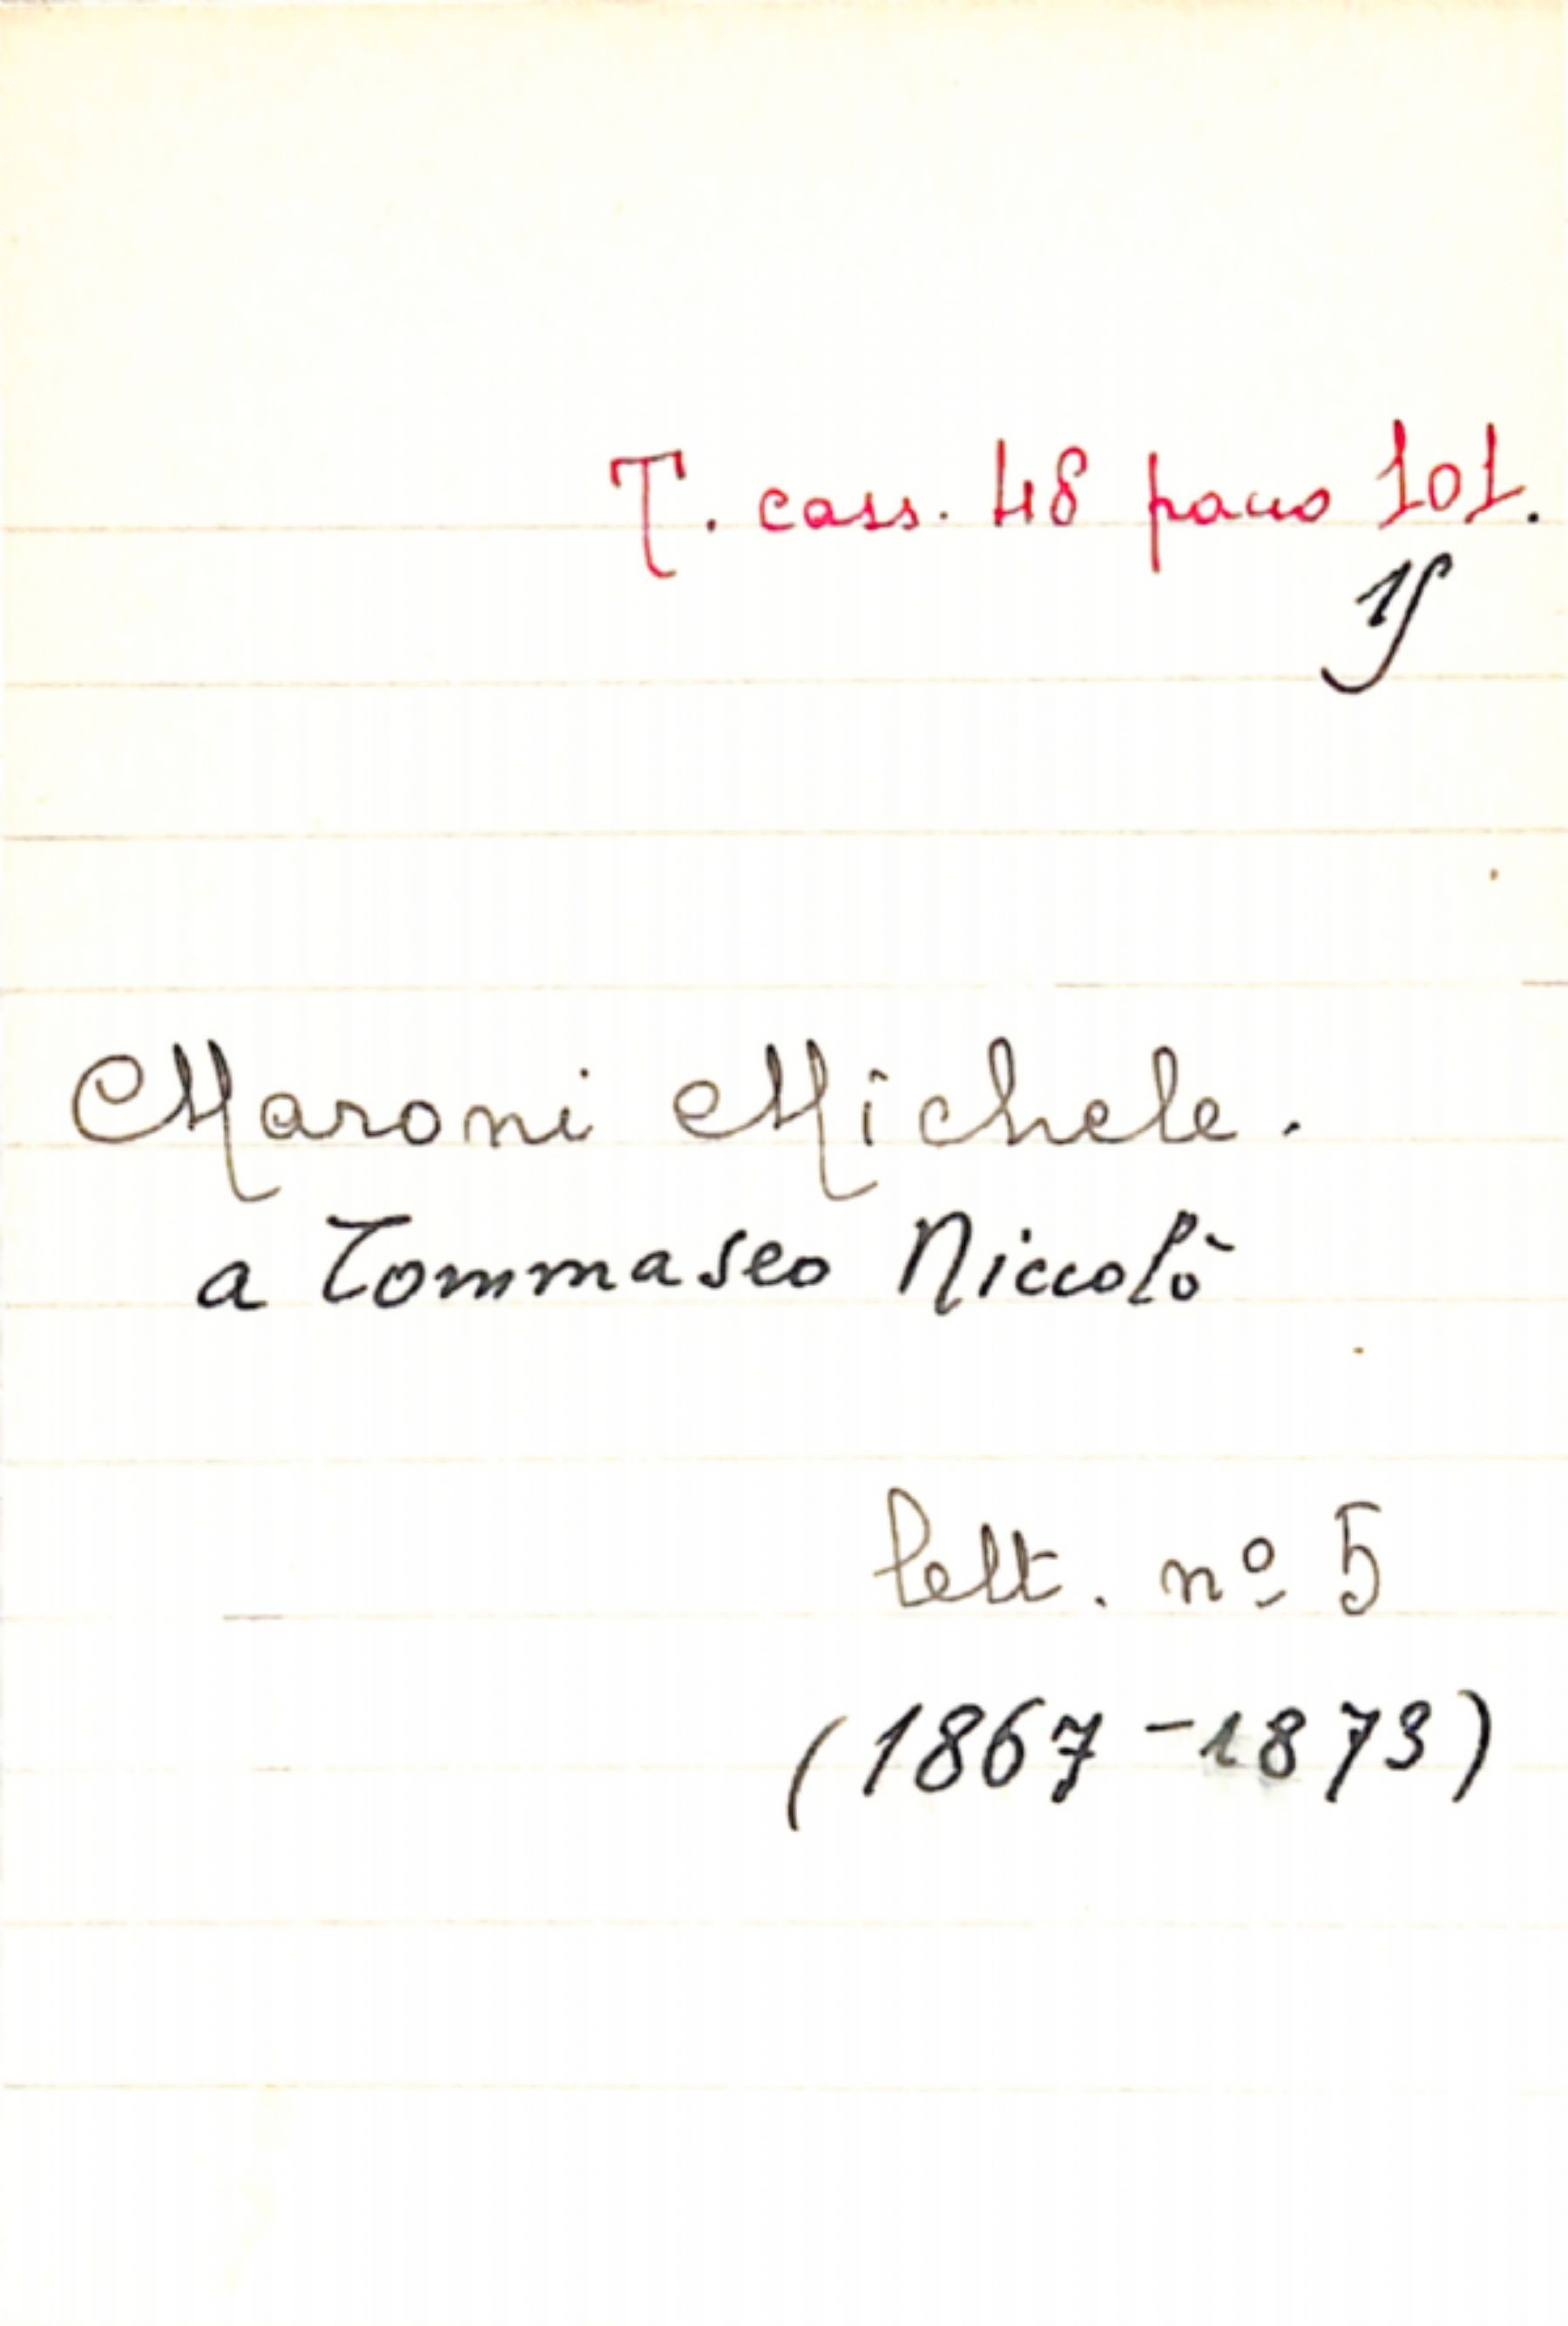 T. cass. 48 pacco 101.
Maroni Michele.
a Tommaseo Niccolò
lett. nº 5
(1867-1873)